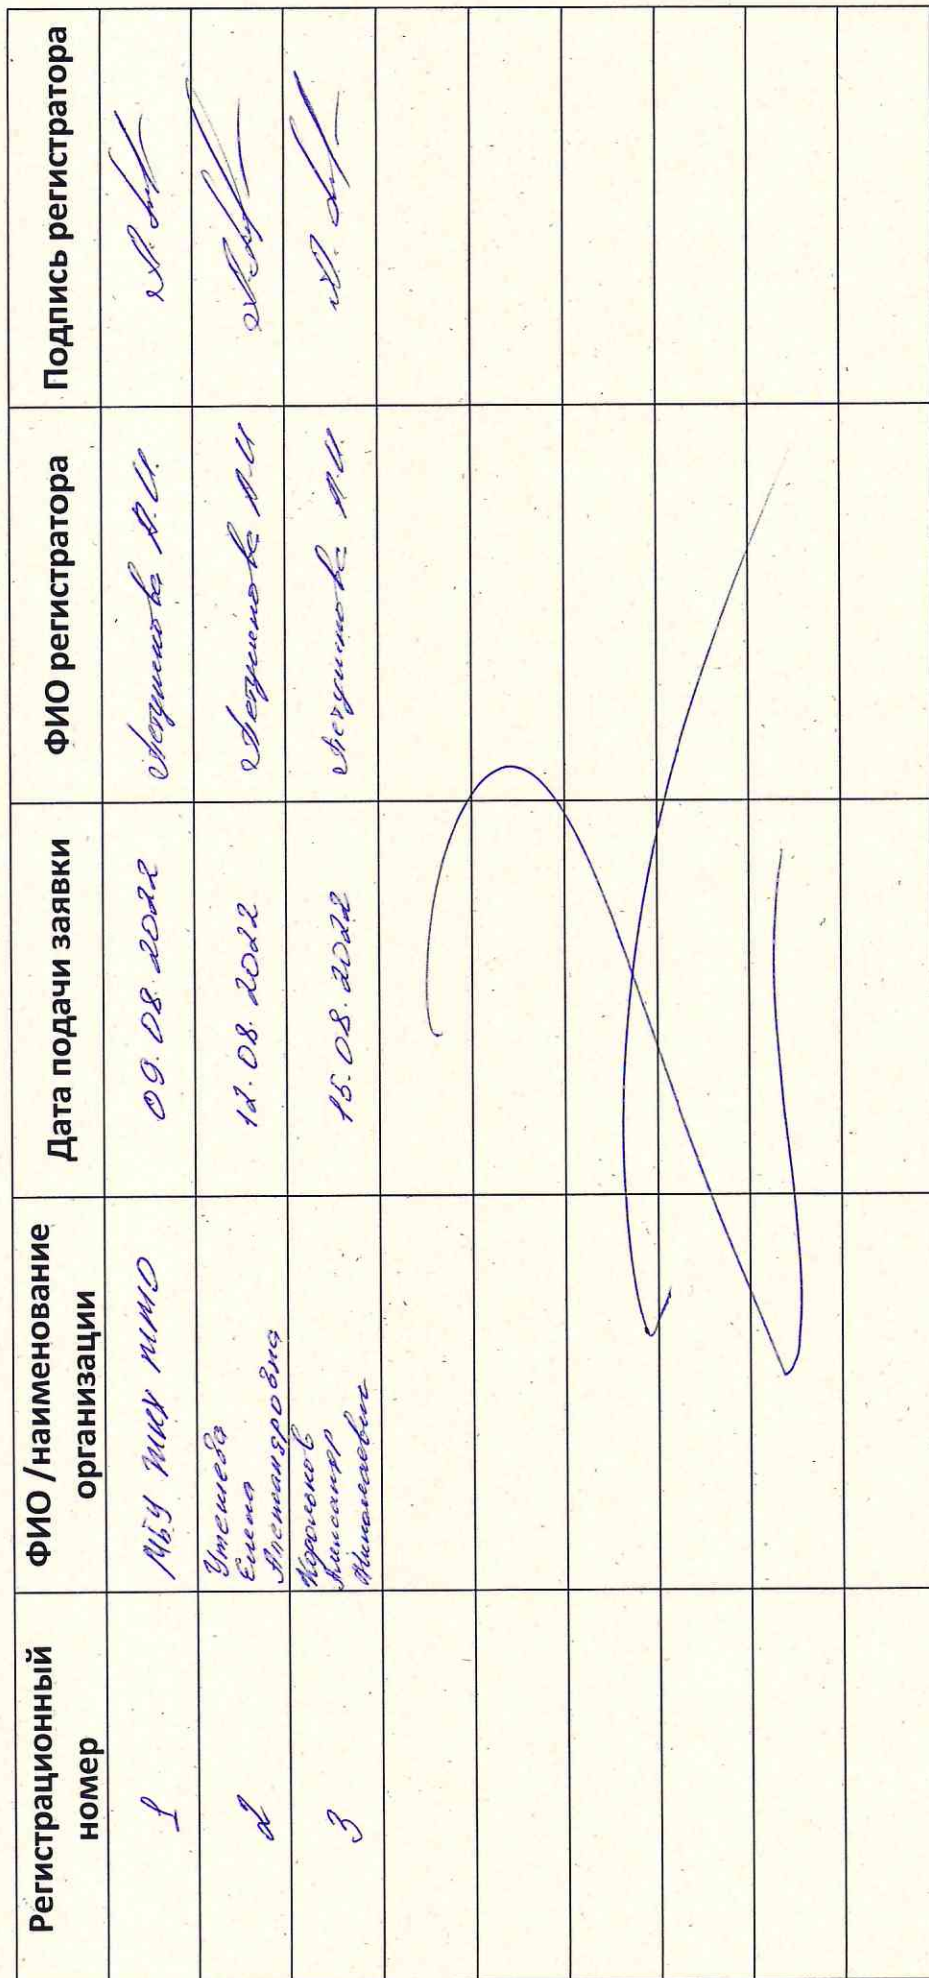 Регистрационный
номер
ФИО /наименование
организации
Дата подачи заявки
ФИО регистратора
Подпись регистратора
1
МБУ
09.08.2022
А.И.
2
Утешева
Елена
Александровна
12.08.2022
А.И
3
Александр
Николаевич
15.08.2022
А.И.